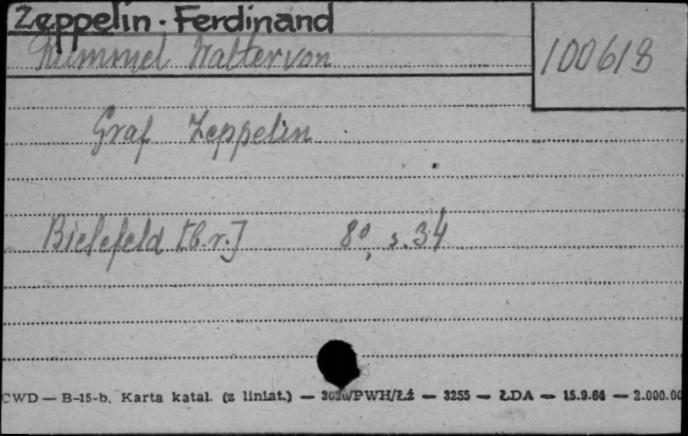 Zeppelin. Ferdinand
Rummel Walter von
100618
Graf Zeppelin
Bielefeld [b.r.] 8°, s. 34
CWD — B-15-b. Karta katal. (z liniat.) — 3020/PWH/Łż — 3255 — ŁDA — 15.9.64 — 2.000.00